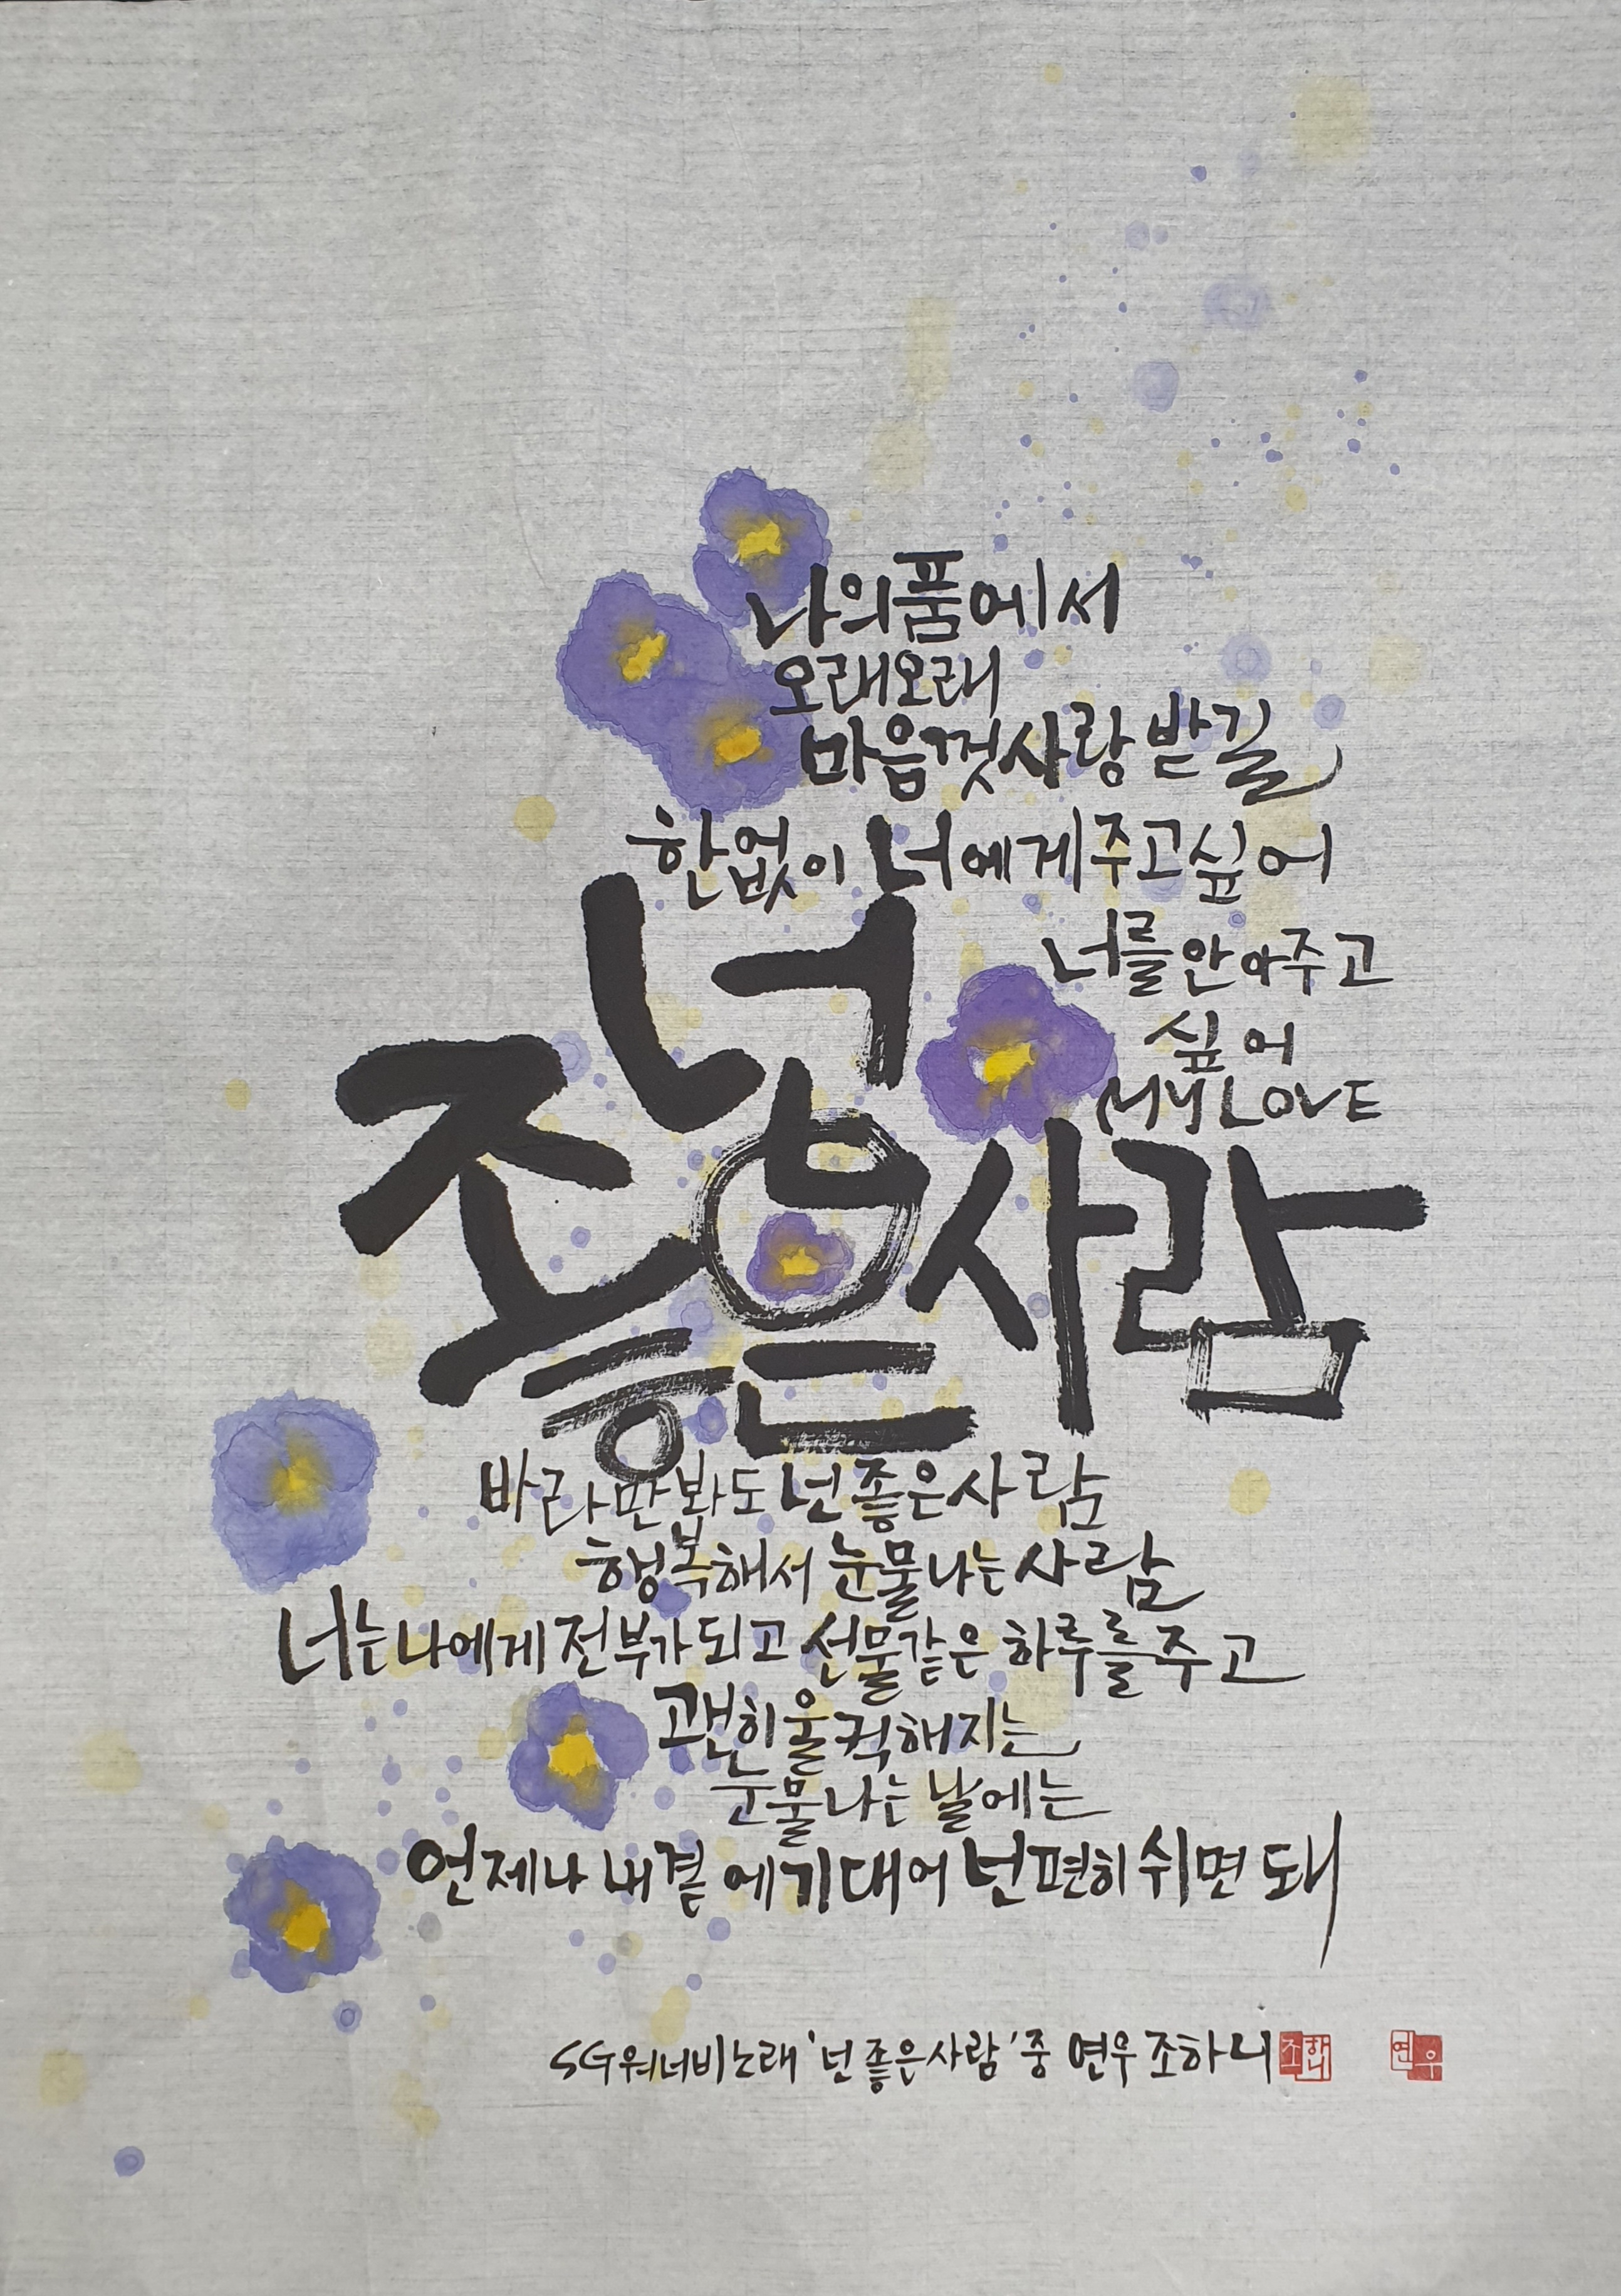 나의 품에서
오래오래
마음껏 사랑 받길
한없이 너에게 주고 싶어
너를 안아주고
싶어
MY LOVE
넌
좋은 사람
바라만 봐도 넌 좋은 사람
행복해서 눈물나는 사람
너는 나에게 전부가 되고 선물같은 하루를 주고
괜히 울컥해지는
눈물나는 날에는
언제나 내 곁에 기대어 넌 편히 쉬면 돼
SG워너비 노래 '넌 좋은 사람' 중 연우 조하니
조하니
연우